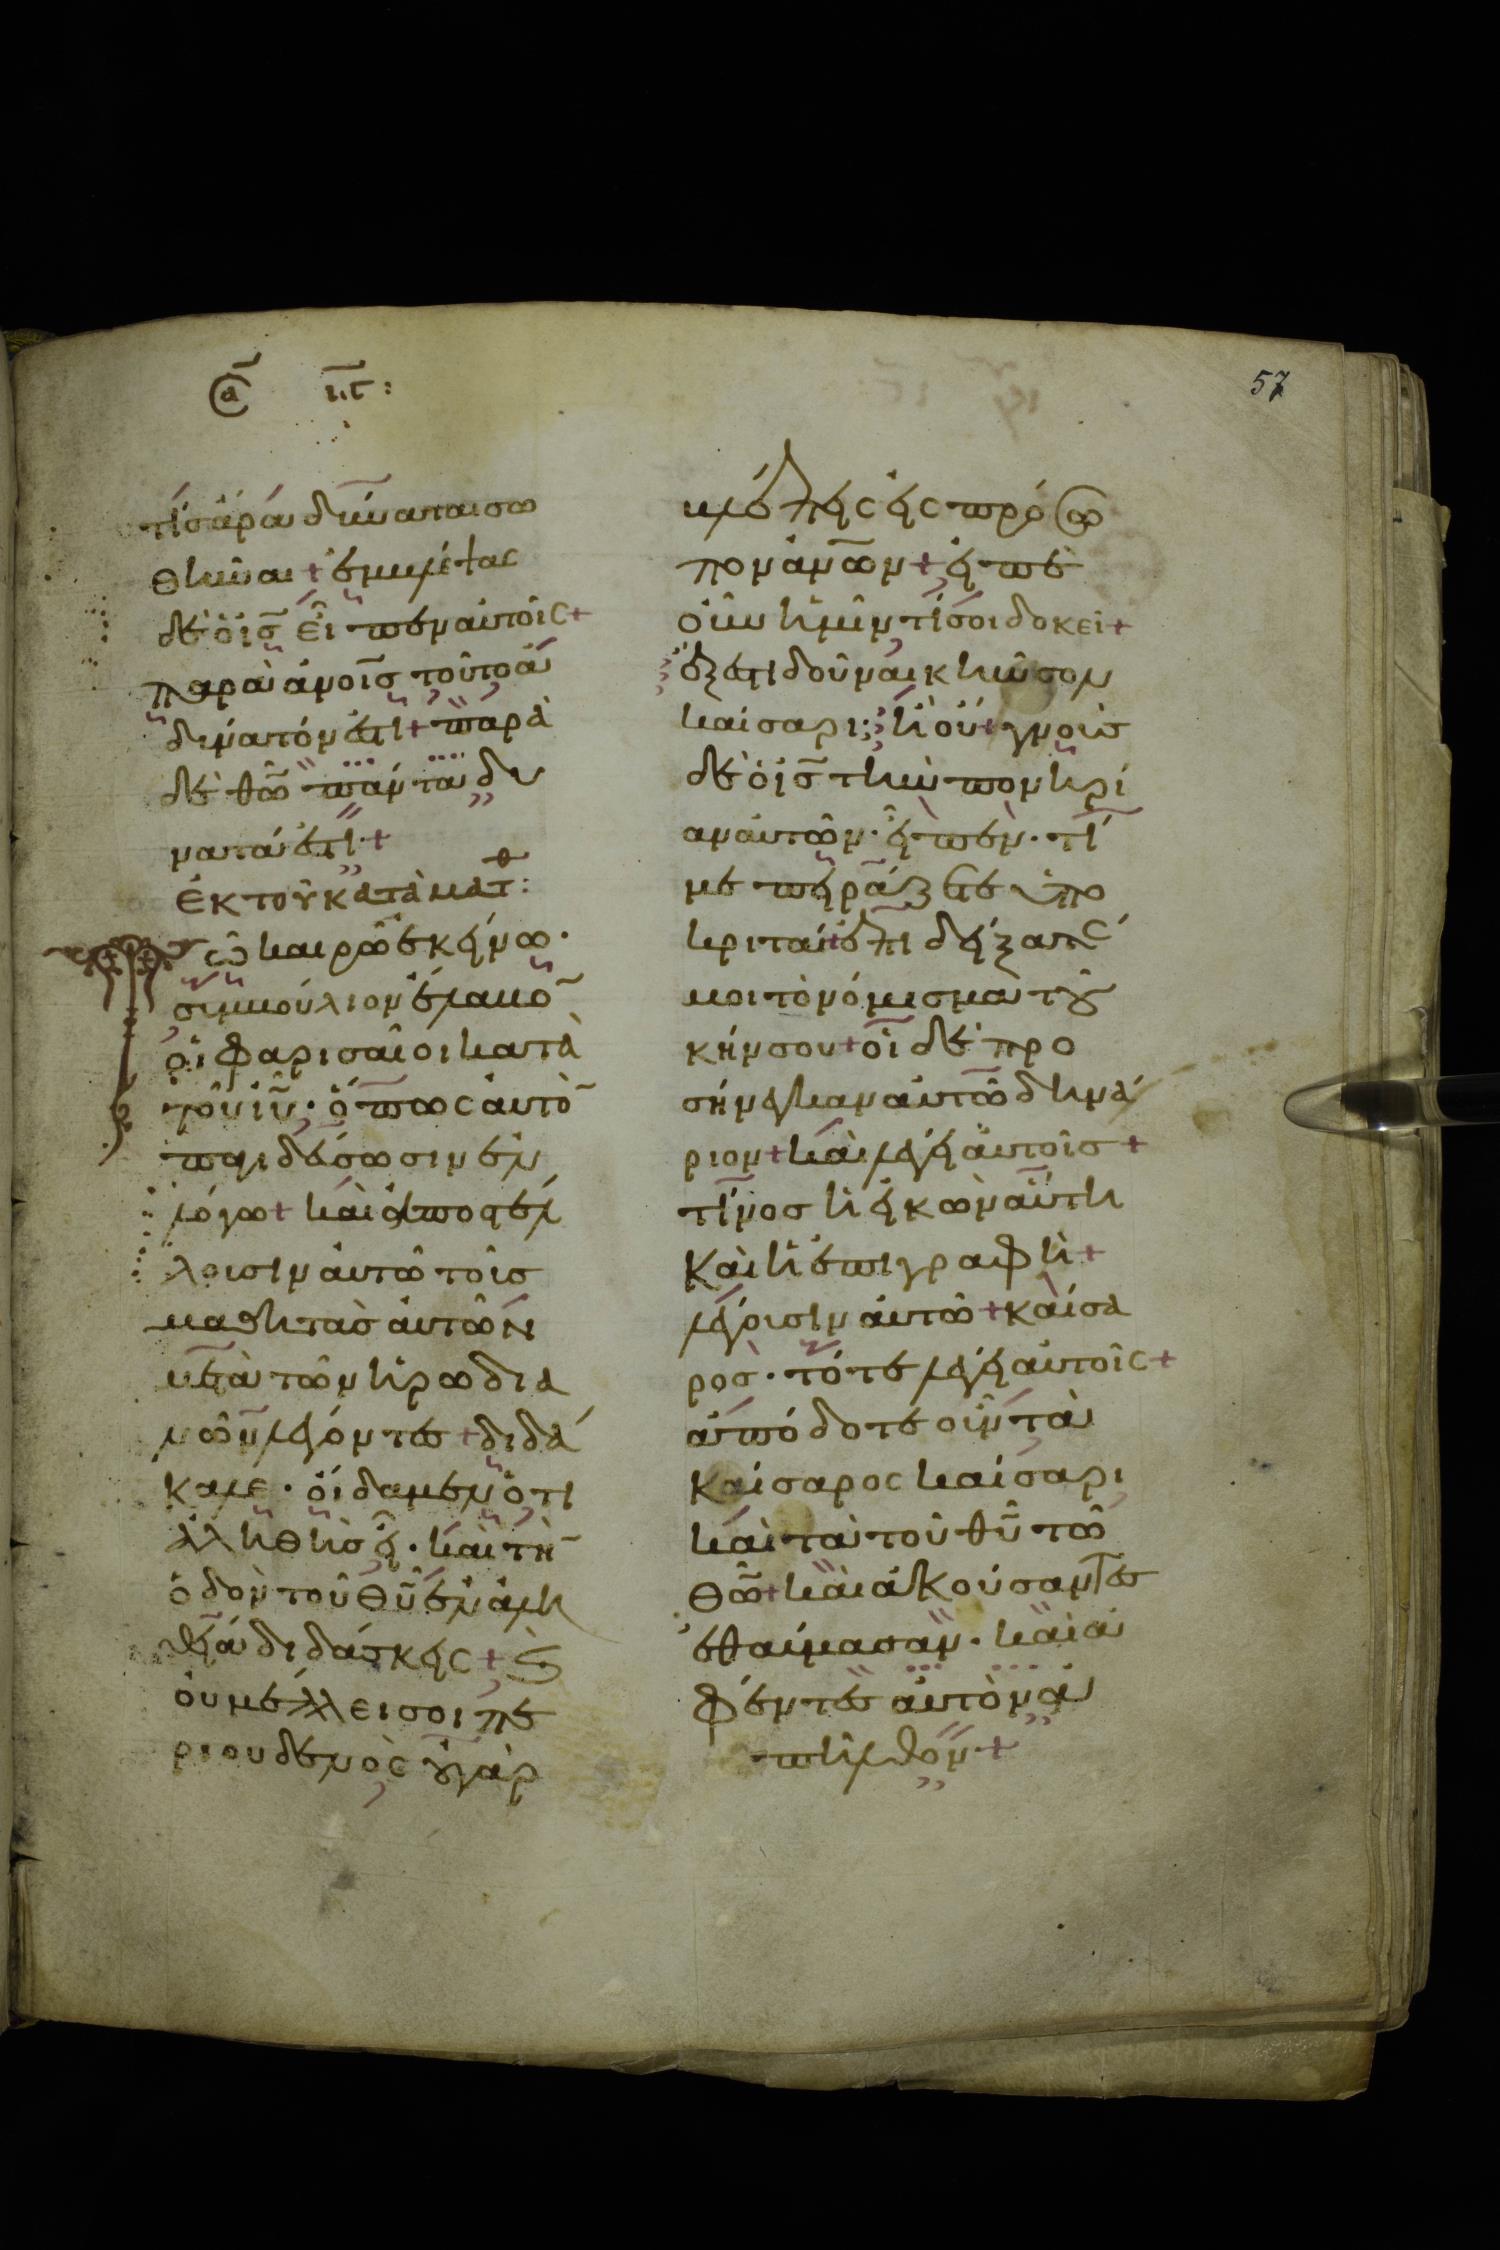 57
τίσ ἄρα δύναται σω
θῆναι + ἐμβλέψας
δὲ ὁ ις̅ εἶπεν αὐτοῖς +
παρὰ ἀνοῖσ̅ τοῦτο ἀ
δύνατόν ἐστι + παρὰ
δὲ θῶ̅ πάντα δυ
νατά ἐστι +
ἐκ τοῦ κατὰ ματθ:
Τῶ καιρῶ ἐκείνω·
συμβούλιον ἔλαβο̅
οἱ φαρισαῖοι κατὰ
τοῦ ιυ̅· ὅπως αὐτὸ̅
παγιδεύσωσιν ἐν
λόγω + καὶ ἀποστέλ
λουσιν αὐτῶ τοὺσ
μαθητὰσ αὐτῶν
μετὰ τῶν ἡρωδια
νῶν λέγοντεσ + διδά
καλε· οἴδαμεν ὅτι
ἀληθὴσ εἶ· καὶ τὴ̅
ὁδὸν τοῦ θυ̅ ἐν ἀλη
θεία διδάσκεις + καὶ
οὐ μέλλει σοι πε
ρι οὐδενὸς οὐ γὰρ
βλέπεις εἰς πρόσω
πον ἀνων̅ + εἰπὲ
οὖν ἡμῖν τί σοι δοκεῖ +
ἔξεστι δοῦναι κῆνσον
καίσαρι; ἢ οὔ + γνοὺσ
δὲ ὁ ισ̅ τὴν πονηρί
αν αὐτῶν· εἶπεν· τί
με πειράζετε ὑπο
κριταί + ἐπιδείξατέ
μοι τὸ νόμισμα τοῦ
κήνσου + οἱ δὲ προ
σήνεγκαν αὐτῶ δηνά
ριον + καὶ λέγει αὐτοῖσ +
τίνοσ ἡ εἰκὼν αὕτη
καὶ ἡ ἐπιγραφὴ +
λέγουσιν αὐτῶ + καίσα
ροσ· τότε λέγει αὐτοῖς +
ἀπόδοτε οὖν τὰ
καίσαρος καίσαρι
καὶ τὰ τοῦ θυ̅ τῶ
θῶ̅ + καὶ ἀκούσαντεσ
ἐθαύμασαν· καὶ ἀ
φέντεσ αὐτὸν ἀ
πῆλθον +